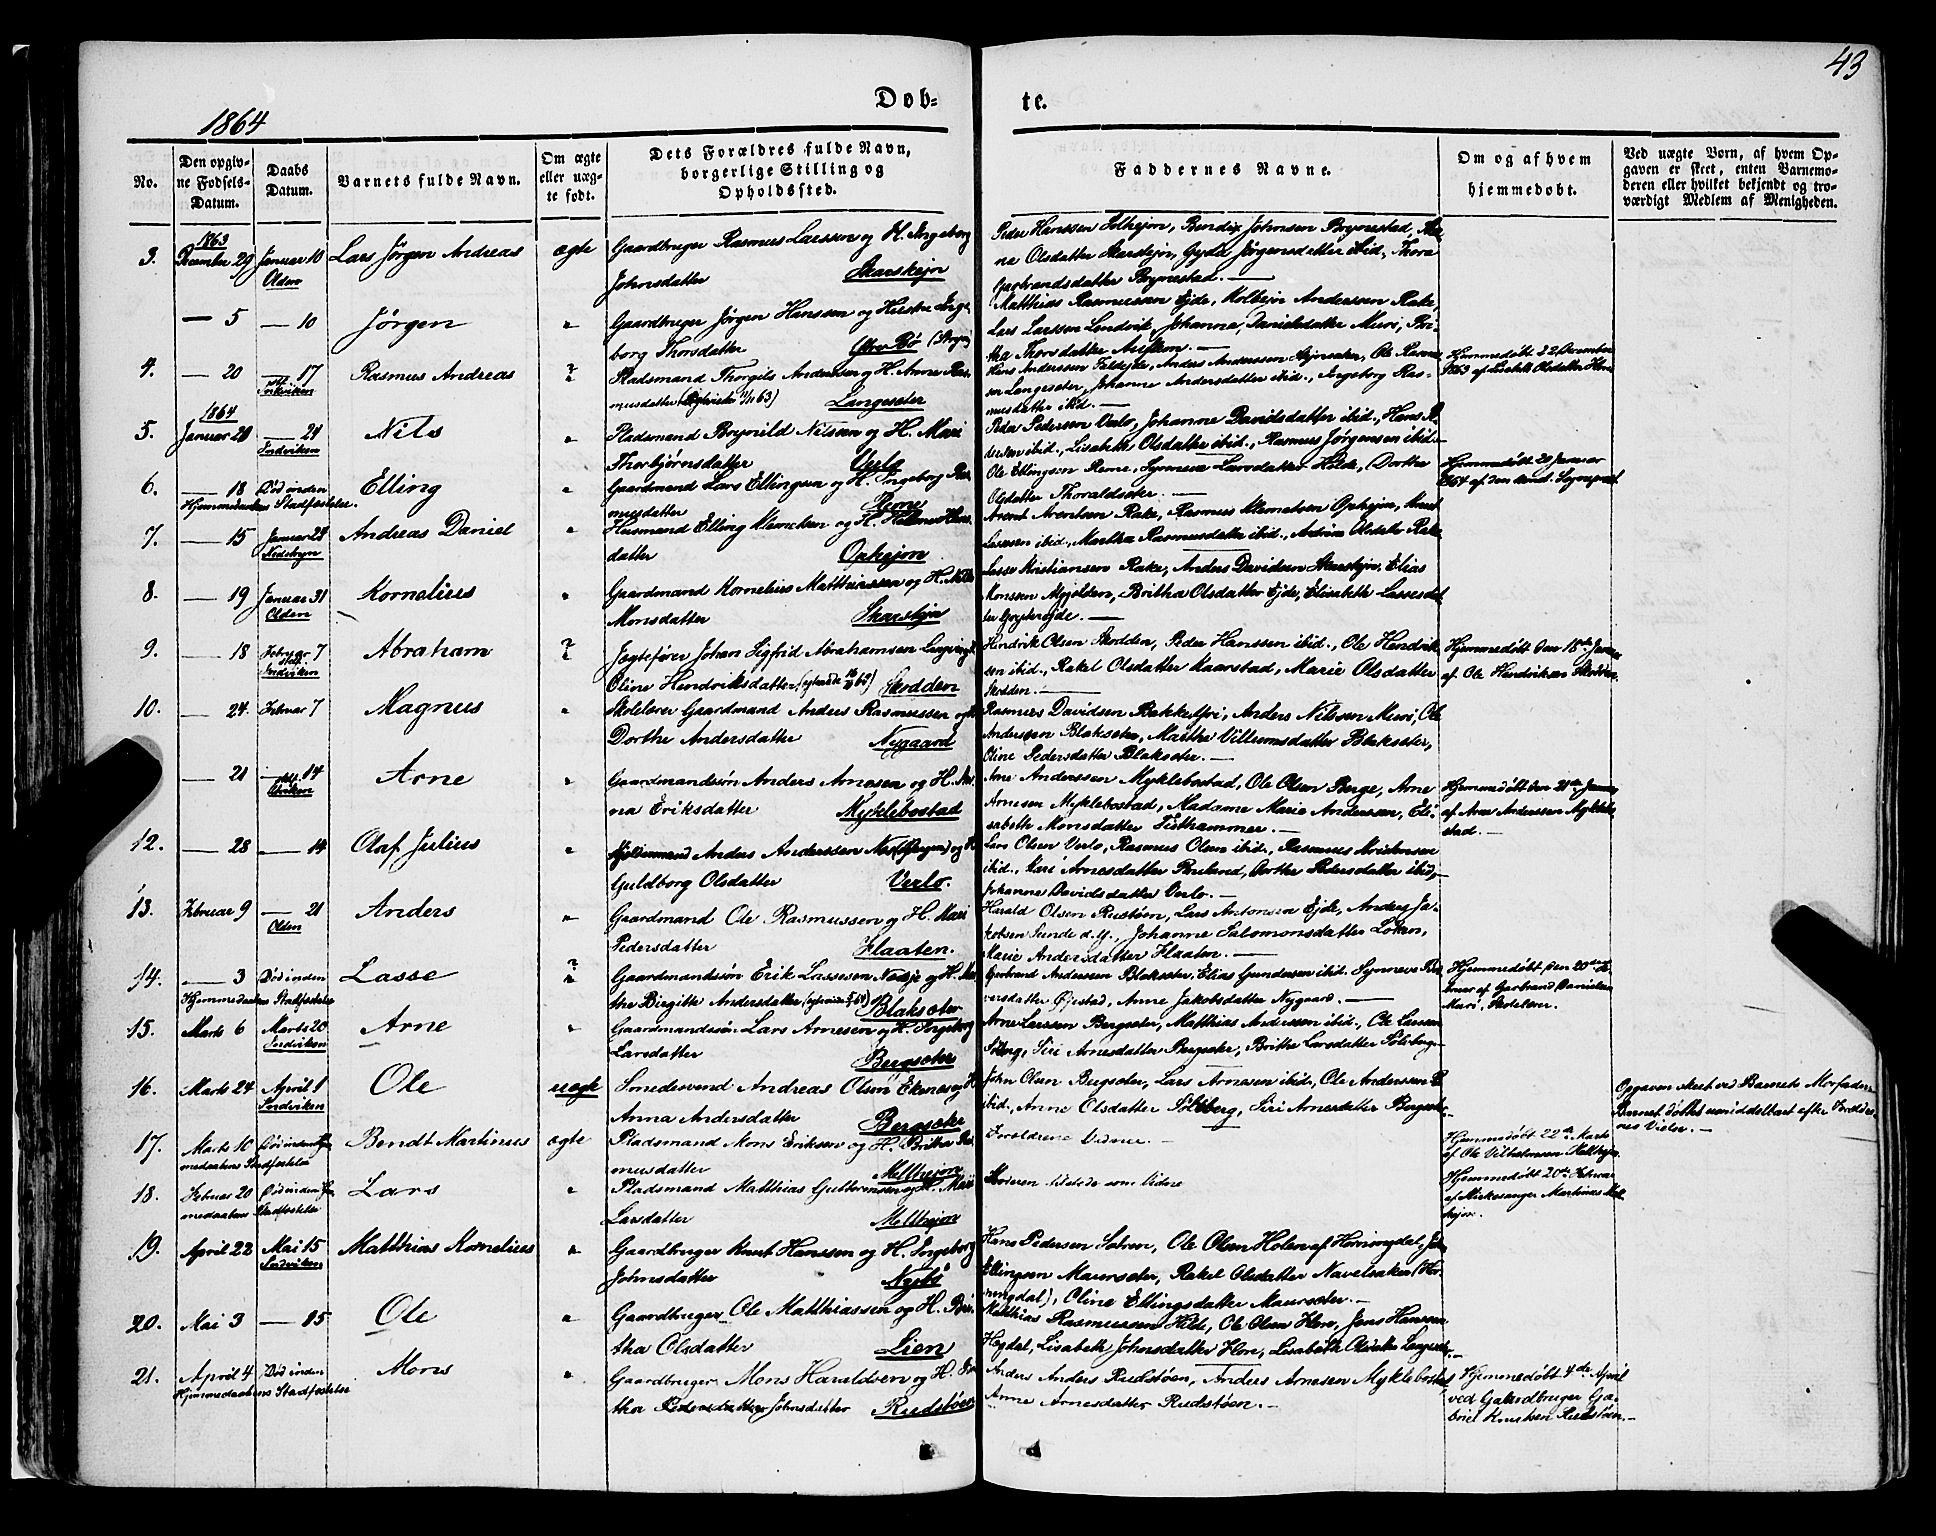 43
Døb-
te.
1864
No.
Den opgiv-
ne Fødsels-
Datum.
Daabs
Datum.
Barnets fulde Navn.
Om ægte
eller uæg-
te født.
Dets Forældres fulde Navn,
borgerlige Stilling og
Opholdssted.
Faddernes Navne.
Om og af hvem
hjemmedøbt.
Ved uægte Børn, af hvem Op-
gaven er skeet, enten Barnemo-
deren eller hvilket bekjendt og tro-
værdigt Medlem af Menigheden.
1863
3. December 29 Januar 10 Lars Jørgen Andreas ægte Gaardbruger Rasmus Larssen og H. Ingeborg
Olden
Johnsdatter Skarstejn
Peder Hanssen Solhejm, Bendix Johnsen Brynestad, An-
na Olsdatter Skarstejn, Gyda Jørgensdatter ibid., Thora
Gerbrandsdatter Brynestad.
— 5 — 10 Jørgen " Gaardbruger Jørgen Hanssen og Hustru Inge-
borg Thorsdatter (Stryn)
Matthias Rasmussen Ejde, Kolbejn Anderssen Rake,
Lars Larssen Lendvik, Johanna Danielsdatter Muri, Bri-
tha Thorsdatter
4. — 20 — 17 Rasmus Andreas Pladsmand Thorgils Anderssen og H. Anne Ras-
Indviken
musdatter Langeseter
Hans Anderssen Anders Anderssen Ole Rasmus-
sen Langeseter, Johanne Andersdatter ibid., Ingeborg Ras-
musdatter ibid.
Hjemmedøbt 22 December
1863 af Lisbeth Olsdatter
1864
5. Januar 20 — 24 Nils " Pladsmand Brynild Nilssen og H. Mari
Indviken
Thorbjørnsdatter Verlo
Peder Pederssen Verlo, Johanne Davidsdatter ibid., Hans
ibid., Lisabeth Olsdatter ibid., Rasmus Jørgensen ibid.
6. — 18 Død inden Elling " Gaardmand Lars Ellingsen og H. Ingeborg Ras-
Hjemmedaabens Stadfæstelse.
musdatter Reme
Ole Ellingsen Reme, Synneva Larsdatter Hilde, Dorthe
Olsdatter Thoraldseter.
Hjemmedøbt 20 Januar
1864 af
7. — 15 Januar 24 Andreas Daniel " Husmand Elling Klemetsen og H. Hans-
Nedstryn
datter Opheim
Arent Arentsen Rake, Rasmus Klemetsen Opheim, Knut
Lassesen ibid., Martha Rasmusdatter ibid., Olsdatter Rake
8. — 19 Januar 31 Kornelius " Gaardmand Kornelius Matthiassen og H.
Olden
Monsdatter Skarstejn
Lasse Kristiansen Rake, Anders Davidsen Skarstejn, Elias
Monssen Myjolden, Britha Olsdatter Ejde, Elisabeth Lassesdat-
ter
9. — 18 Februar 7 Abraham Jægtefører Johan Sigfrid Abrahamsen og
Indviken
Oline Hendriksdatter Skodden
Hendrik Olsen Skodden, Peder Hanssen ibid., Ole Hendrik-
sen ibid., Rakel Olsdatter Kaarstad, Marie Olsdatter
Skodden.
Hjemmedøbt den 18de Januar
af Ole Hendriksen Skodden
10. — 24. Februar 7 Magnus " Skolelærer Gaardmand Anders Rasmussen og H.
Dorthe Andersdatter Nygaard
Rasmus Davidsen Bakke Anders Nilssen Muri, Ole
Anderssen Blakseter, Marthe Villumsdatter Blakseter,
Oline Pedersdatter Blakseter.
— 21 — 14 Arne " Gaardmandssøn Anders Arnesen og H. An-
na Eriksdatter Myklebostad
Arne Anderssen Myklebostad, Ole Olsen Berge, Arne
Arnesen Myklebostad, Madame Marie Andersen, Eli-
sabeth Monsdatter Tisthammer.
Hjemmedøbt den 21de Januar
af Arne Anderssen Mykleb-
stad.
12. — 28 — 14 Olaf Julius " Anders Anderssen og H.
Guldborg Olsdatter Verlo.
Lars Olsen Verlo, Rasmus Olsen ibid., Rasmus Kristensen
ibid., Kari Arnesdatter Dorthe Pedersdatter ibid.,
Johanne Davidsdatter Verlo.
13. Februar 9 — 21 Anders " Gaardmand Ole Rasmussen og H. Mari
Olden
Pedersdatter Flaaten.
Harald Olsen Rustøen, Lars Antonsen Ejde, Anders Ja-
kobsen Sunde d. y., Johanne Salomonsdatter Loken,
Marie Andersdatter Flaaten.
14. — 3 Død inden Lasse Gaardmandssøn Erik Lassesen og H. Mar-
Hjemmedaabens Stadfæstelse
tha Birgitte Andersdatter Blakseter
Gerbrand Anderssen Blakseter, Elias Gunderssen ibid. Synneve
Anne Jakobsdatter Nygaard.
Hjemmedøbt den 20de Fe-
bruar af Gerbrand Danielsen
Muri, Skolelærer.
15. Marts 6 Marts 20 Arne " Gaardmandssøn Lars Arnesen og H. Ingeborg
Indviken
Larsdatter Bergseter
Arne Larssen Bergseter, Matthias Anderssen ibid., Ole Larssen
Siri Arnesdatter Bergseter, Brithe Larsdatter
16. Marts 24 April 1 Ole uægte Smedesvend Andreas Olsen Ekenes og
Indviken
Anna Andersdatter Bergseter
John Olsen Bergseter, Lars Arnesen ibid., Ole Anderssen
ibid., Anne Olsdatter Siri Arnesdatter Bergseter.
Opgaven skeet ved Barnets Morfader.
Barnet døbtes umiddelbart efter Foræld-
renes Vielse.
17. Marts 10 Død inden Bendt Martinus ægte Pladsmand Mons Eriksen og H. Brithe Ras-
medaabens Stadfæstelse
musdatter Melhejm
Forældrene Vidner.
Hjemmedøbt 22de Marts
af Ole Vilhelmsen
18. Februar 20 Død inden Lars " Pladsmand Matthias Guttormsen og H. Mari
medaabens Stadfæstelse
Larsdatter Melhejm
Moderen tilstede som Vidne
Hjemmedøbt 20de Februar
af Kirkesanger Martinus Mel-
hejm.
19. April 22 Mai 15 Matthias Kornelius " Gaardbruger Knut Hanssen og H. Ingeborg
Indviken
Johnsdatter Nybø
Hans Pedersen Sætren, Ole Olsen Holen af Hornindal,
Ellingsen Maurseter, Rakel Olsdatter Navelsaker (Hor-
ningdal), Oline Ellingsdatter Maurseter.
20. Mai 3 — 15 Ole " Gaardbruger Ole Matthiassen og H. Bri-
tha Olsdatter Lien
Matthias Rasmussen Hilde, Ole Olsen Jens Hansen
Hegdal, Lisabeth Johnsdatter Lisabeth Olsdatter
21. April 4 Død inden Mons " Gaardbruger Mons Haraldsen og H.
Hjemmedaabens Stadfæstelse
Johnsdatter Rudstøen
Anders Anders Rudstøen, Anders Arnesen Myklebostad
Anne Arnesdatter Rudstøen.
Hjemmedøbt 4de April
ved Gaardbruger Ga-
briel Knutsen Rudstøen.